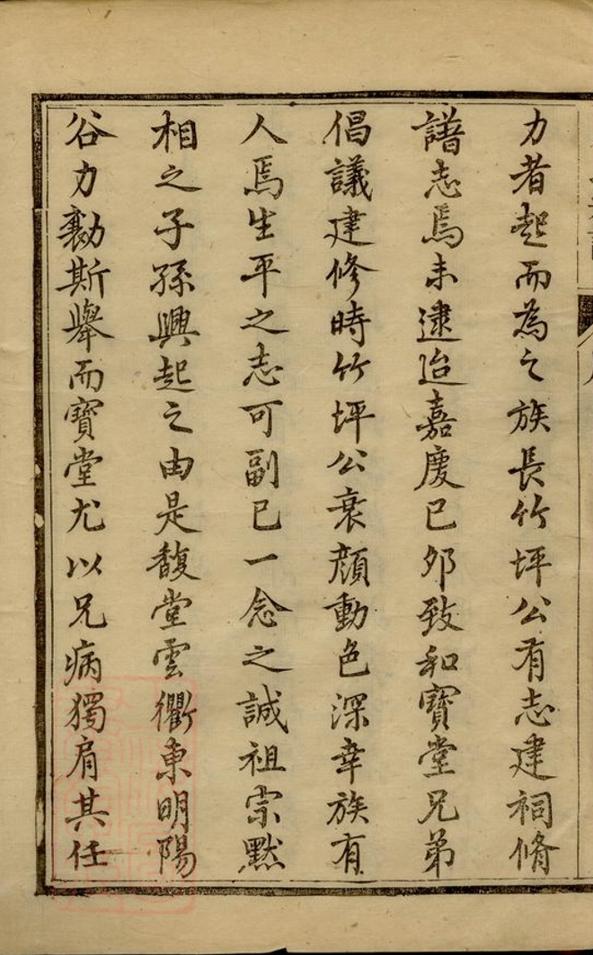 力者起而為之族長竹坪公有志建祠脩
譜志焉未逮迨嘉慶己夘致和寶堂兄弟
倡議建修時竹坪公衰顔動色深幸族有
人焉生平之志可副已一念之誠祖宗默
相之子孫興起之由是馥堂雲衢東明陽
谷力勷斯舉而寶堂尤以兄病獨肩其任